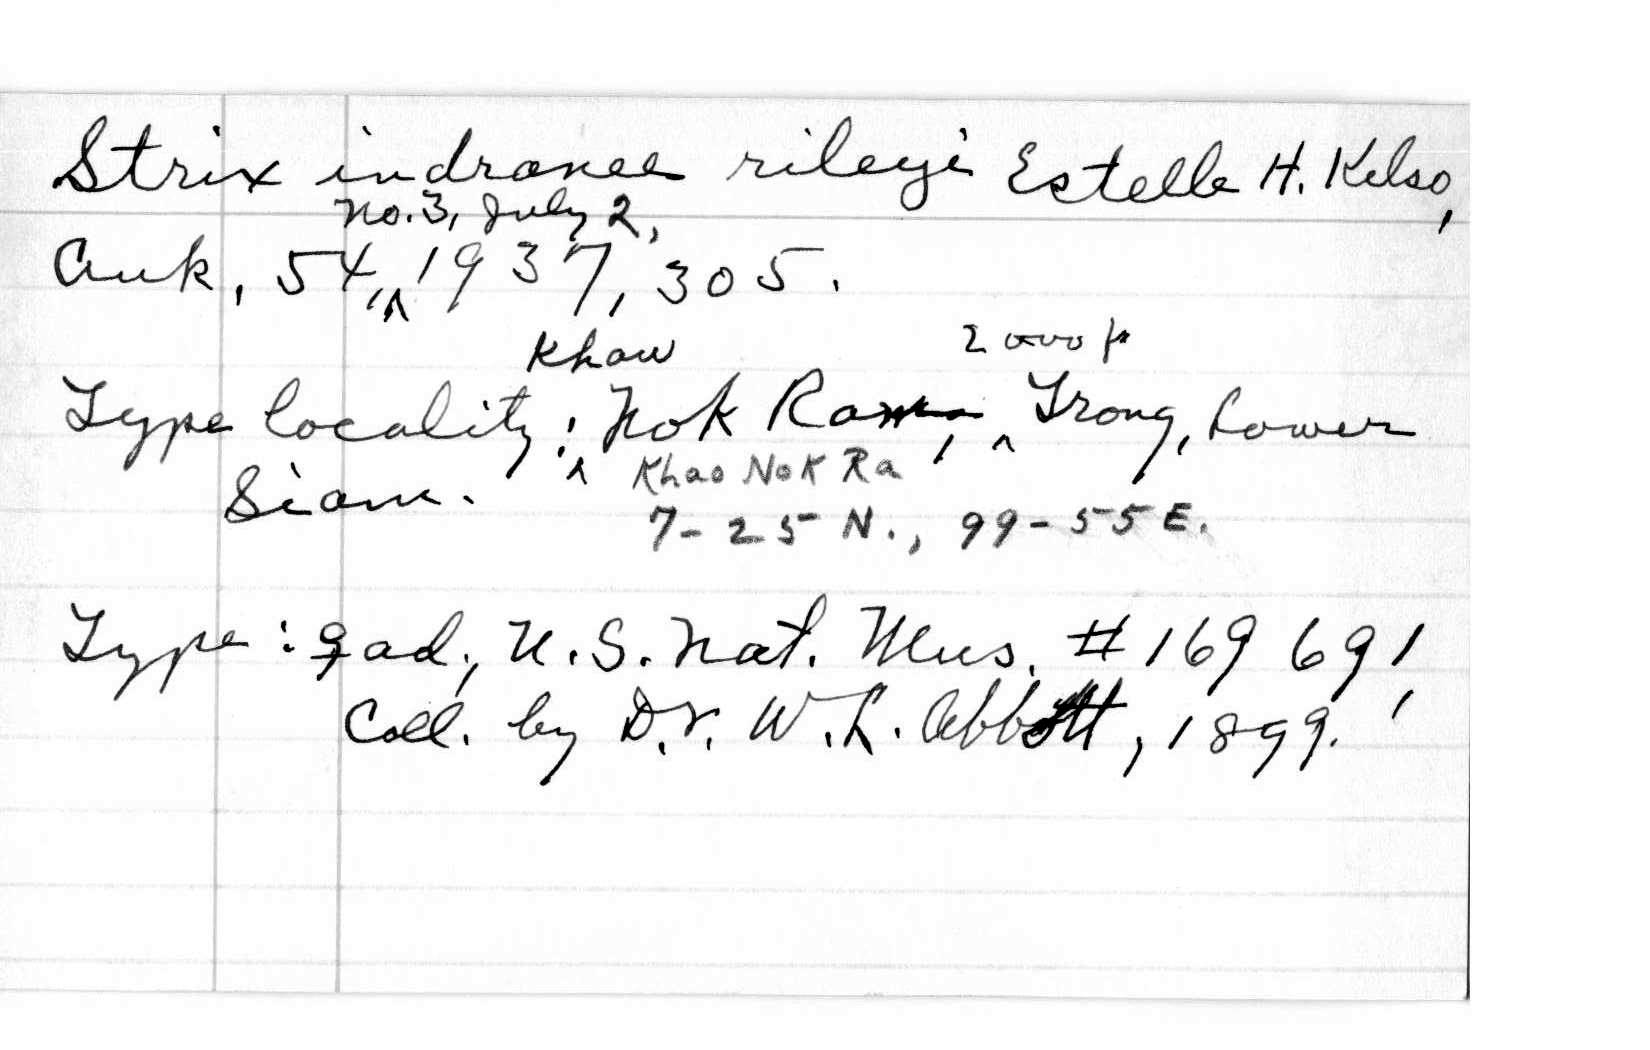 Strix indranee rileyi Estelle H. Kelso,
No. 3, July 2,
Auk, 54, ^ 1937, 305.
Khow 2000 ft
Type locality: ^ Nok Ram, ^ Trong, Lower
Khao Nok Ra
Siam.
7-25 N., 99-55 E.
Type: ♀ ad., U.S. Nat. Mus. #169 691,
Coll. by Dr. W. L. Abbott, 1899.